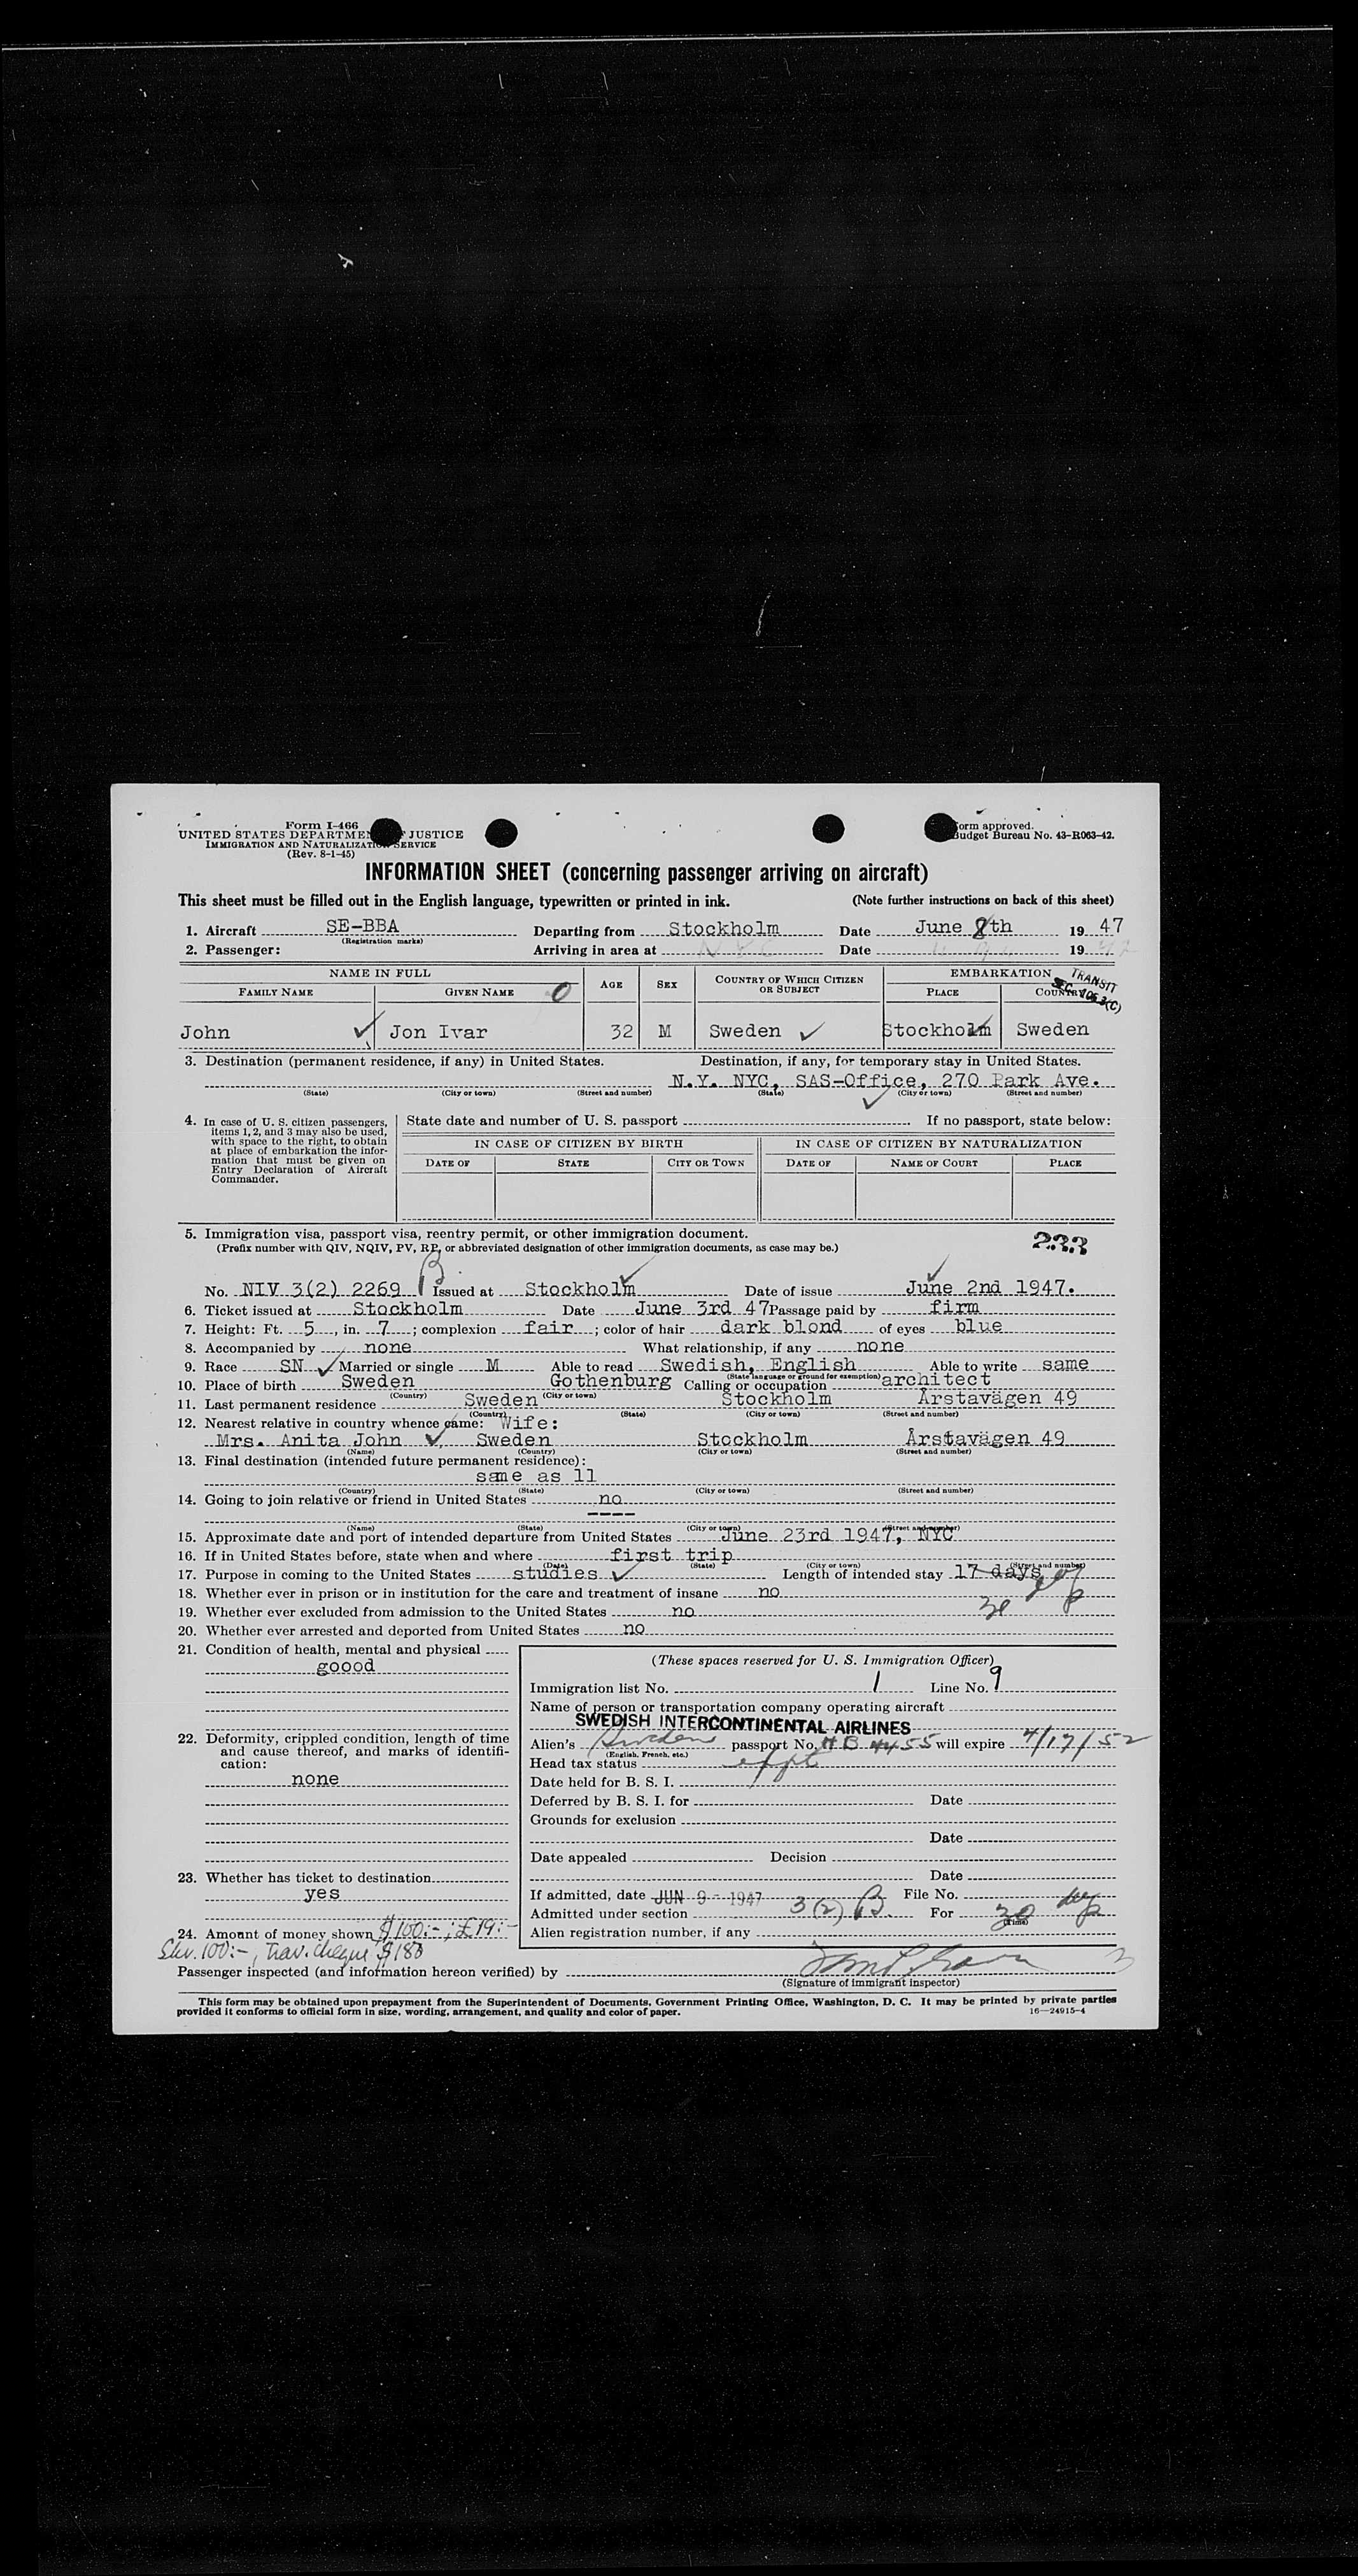 Form I-466
UNITED STATES DEPARTME JUSTICE
IMMIGRATION AND NATURALIZATION SERVICE
(Rev. 8-1-45)
orm approved.
Budget Bureau No. 43-R063-42.
INFORMATION SHEET (concerning passenger arriving on aircraft)
This sheet must be filled out in the English language, typewritten or printed in ink. (Note further instructions on back of this sheet)
1. Aircraft SE-BBA Departing from Stockholm Date June 8th 1947
(Registration marks)
2. Passenger: Arriving in area at NYC Date 19
NAME IN FULL AGE SEX COUNTRY OF WHICH CITIZEN OR SUBJECT EMBARKATION
FAMILY NAME GIVEN NAME PLACE COUNTRY
TRANSIT
SEC. 105.3(C)
John Jon Ivar 32 M Sweden Stockholm Sweden
3. Destination (permanent residence, if any) in United States. Destination, if any, for temporary stay in United States.
N.Y. NYC, SAS-Office, 270 Park Ave.
(State) (City or town) (Street and number) (State) (City or town) (Street and number)
4. In case of U. S. citizen passengers, items 1, 2, and 3 may also be used, with space to the right, to obtain at place of embarkation the information that must be given on Entry Declaration of Aircraft Commander.
State date and number of U. S. passport If no passport, state below:
IN CASE OF CITIZEN BY BIRTH IN CASE OF CITIZEN BY NATURALIZATION
DATE OF STATE CITY OR TOWN DATE OF NAME OF COURT PLACE
5. Immigration visa, passport visa, reentry permit, or other immigration document.
(Prefix number with QIV, NQIV, PV, RP, or abbreviated designation of other immigration documents, as case may be.)
233
No. NIV 3(2) 2269 B Issued at Stockholm Date of issue June 2nd 1947.
6. Ticket issued at Stockholm Date June 3rd 47 Passage paid by firm
7. Height: Ft. 5, in. 7; complexion fair; color of hair dark blond of eyes blue
8. Accompanied by none What relationship, if any none
9. Race SN Married or single M Able to read Swedish, English Able to write same
(State language or ground for exemption)
10. Place of birth Sweden Gothenburg Calling or occupation architect
(Country) (City or town)
11. Last permanent residence Sweden Stockholm Årstavägen 49
(Country) (State) (City or town) (Street and number)
12. Nearest relative in country whence came: Wife:
Mrs. Anita John Sweden Stockholm Årstavägen 49
(Name) (Country) (City or town) (Street and number)
13. Final destination (intended future permanent residence):
same as 11
(Country) (State) (City or town) (Street and number)
14. Going to join relative or friend in United States no
----
(Name) (State) (City or town) (Street and number)
15. Approximate date and port of intended departure from United States June 23rd 1947, NYC
16. If in United States before, state when and where first trip
(Date) (State) (City or town) (Street and number)
17. Purpose in coming to the United States studies Length of intended stay 17 days
18. Whether ever in prison or in institution for the care and treatment of insane no
19. Whether ever excluded from admission to the United States no
20. Whether ever arrested and deported from United States no
21. Condition of health, mental and physical
goood
22. Deformity, crippled condition, length of time and cause thereof, and marks of identification:
none
23. Whether has ticket to destination
yes
24. Amount of money shown $100:-, £19:-
Skr. 100:-, Trav. cheque $180
(These spaces reserved for U. S. Immigration Officer)
Immigration list No. 1 Line No. 9
Name of person or transportation company operating aircraft
SWEDISH INTERCONTINENTAL AIRLINES
Alien's Sweden passport No. HB 4455 will expire 4/17/52
(English, French, etc.)
Head tax status
Date held for B. S. I.
Deferred by B. S. I. for Date
Grounds for exclusion
Date
Date appealed Decision
Date
If admitted, date JUN 9 - 1947 File No.
Admitted under section 3(2) B For 30
(Time)
Alien registration number, if any
Passenger inspected (and information hereon verified) by
(Signature of immigrant inspector)
This form may be obtained upon prepayment from the Superintendent of Documents, Government Printing Office, Washington, D. C. It may be printed by private parties
provided it conforms to official form in size, wording, arrangement, and quality and color of paper. 16—24915-4